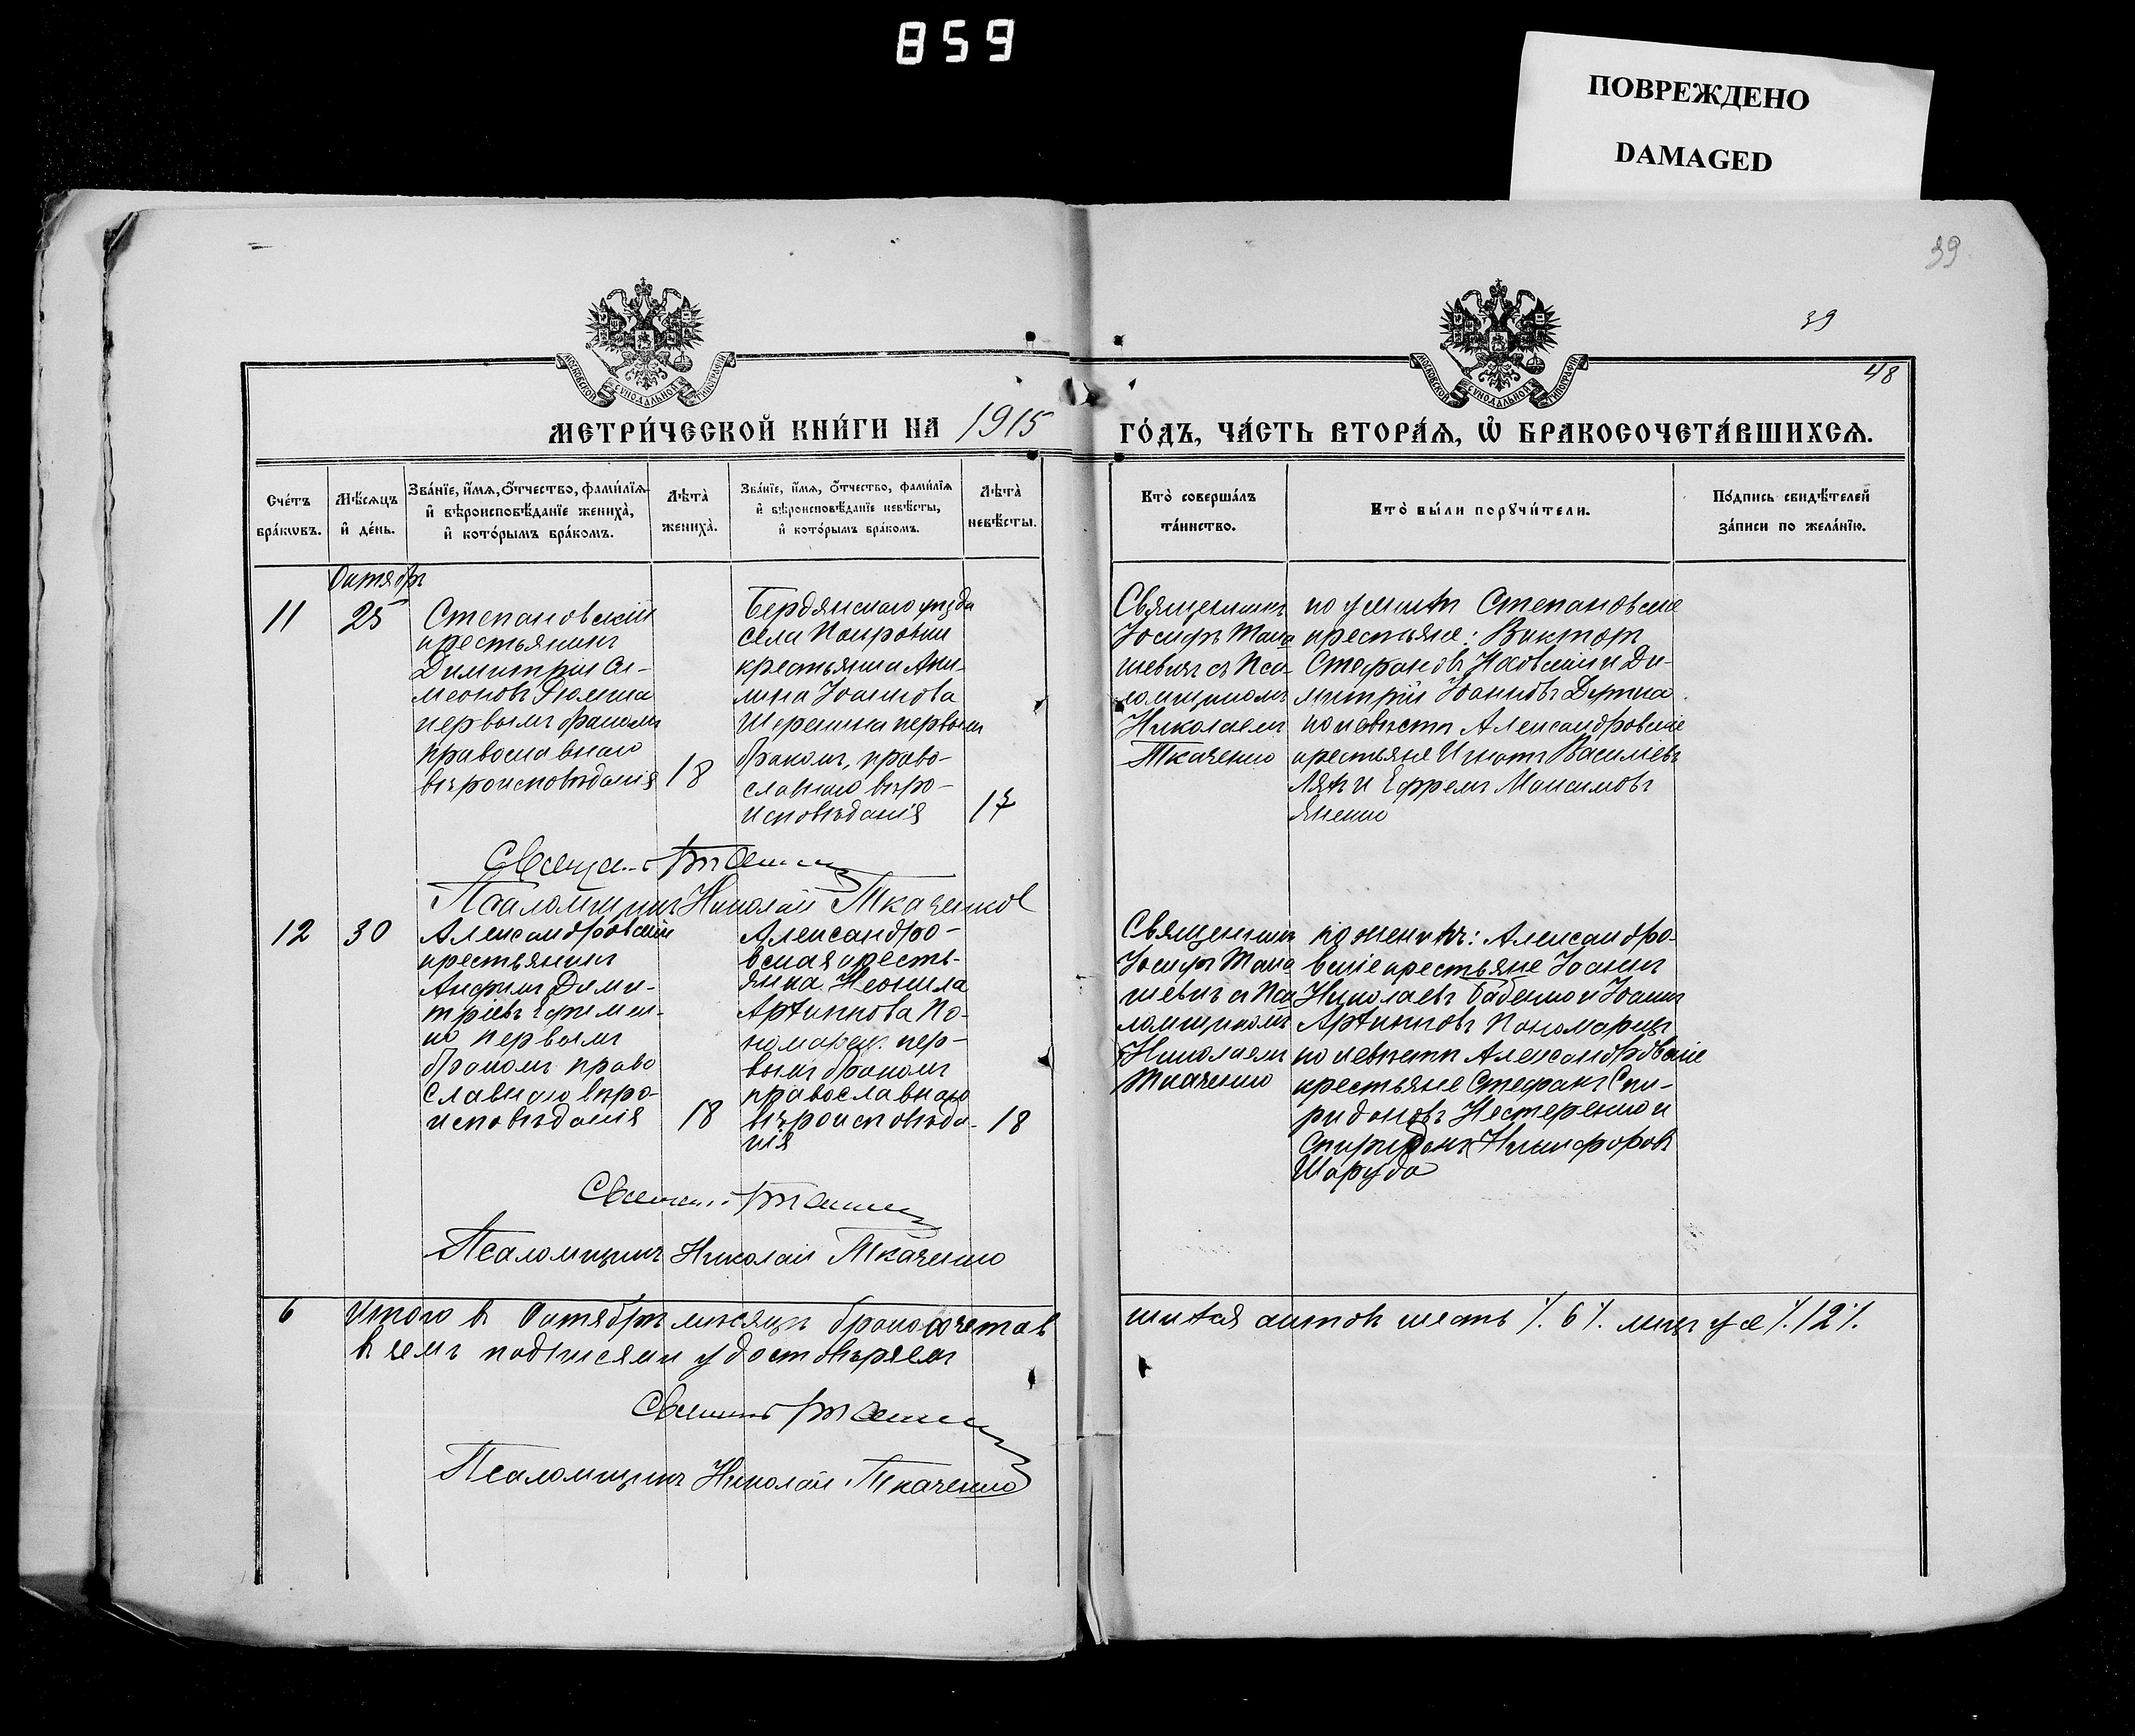 859
ПОВРЕЖДЕНО
DAMAGED
39
39
48
МОСКОВСКОЙ СѴНОДАЛЬНОЙ ТИПОГРАФІИ
МОСКОВСКОЙ СѴНОДАЛЬНОЙ ТИПОГРАФІИ
МЕТРИ́ЧЕСКОЙ КНИ́ГИ НА 1915
ГО́ДЪ, ЧА́СТЬ ВТОРА́Ѧ, Ѡ҆ БРАКОСОЧЕТА́ВШИХСѦ.
Сче́тъ
бра́кѡвъ.
Мѣ́сяцъ
и҆ де́нь.
Зва́нїе, и҆́мѧ, ѻ҆́тчество, фами́лїѧ
и҆ вѣроисповѣ́данїе жениха̀,
и҆ кото́рымъ бра́комъ.
Лѣта̀
жениха̀.
Зва́нїе, и҆́мѧ, ѻ҆́тчество, фами́лїѧ
и҆ вѣроисповѣ́данїе невѣ́сты,
и҆ кото́рымъ бра́комъ.
Лѣта̀
невѣ́сты.
Кто̀ соверша́лъ
та́инство.
Кто̀ бы́ли порꙋчи́тели.
По́дпись свидѣ́телей
за́писи по жела́нїю.
Октябрь
11
25
Степановскій
крестьянинъ
Димитрій Си-
меоновъ
первымъ бракомъ
православнаго
вѣроисповѣданія
18
Бердянскаго уѣзда
села Покровки
крестьянка Аки-
лина Іоаннова
первымъ
бракомъ, право-
славнаго вѣро-
исповѣданія
17
Священникъ
Іосифъ Тома
шевичъ съ Пса-
ломщикомъ
Николаемъ
Ткаченко
по жениху Степановскіе
крестьяне: Викторъ
Стефановъ и Ди-
митрій Іоанновъ
по невѣстѣ Александровскіе
крестьяне Игнатъ Васильевъ
и Ефремъ Максимовъ
Яненко
Священ.
Псаломщикъ Николай Ткаченко
12
30
Александровскій
крестьянинъ
Анфимъ Дими-
тріевъ Ефимен-
ко первымъ
бракомъ право
славнаго вѣро-
исповѣданія
18
Александро-
вская кресть-
янка Неонила
Архиппова По-
номарец. пер-
вымъ бракомъ
православнаго
вѣроисповѣда-
нія
18
Священникъ
Іосифъ Тома
шевичъ съ Пса
ломщикомъ
Николаемъ
Ткаченко
по женихѣ: Александро-
вскіе крестьяне Іоаннъ
Николаевъ Бабенко и Іоаннъ
Архипповъ Пономарецъ
по невѣстѣ Александровскіе
крестьяне Стефанъ Спи-
ридоновъ Нестеренко и
Спиридонъ Никифоровъ
Шаруда
Священ.
Псаломщикъ Николай Ткаченко
6
Итого въ Октябрѣ мѣсяцѣ бракосочетав
шихся актовъ шесть /. 6 /. лицъ /. 12 /.
въ чемъ подписями удостовѣряемъ
Священ.
Псаломщикъ Николай Ткаченко